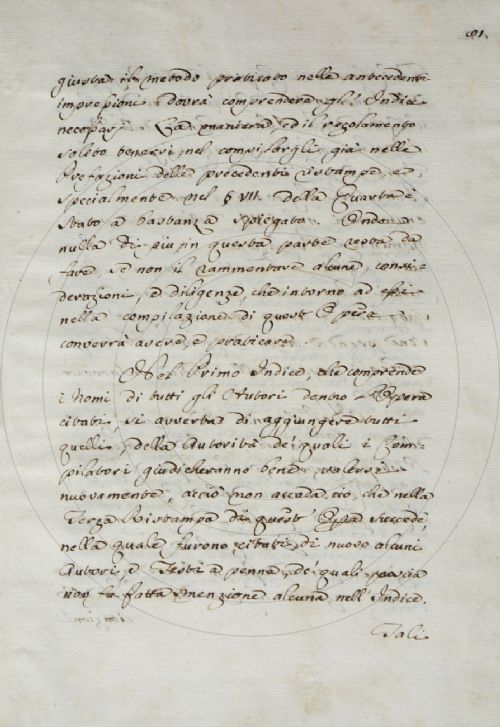 91.
giusta il metodo praticato nelle antecedenti
impressioni dovrà comprendere gl' Indici
necessarj. La maniera, ed il regolamento
solito tenersi nel compilargli già nelle
Prefazioni delle precedenti ristampe, e
specialmente nel § VII. della Quarta è
stato a bastanza spiegato. Onde
nulla di più in questa parte resta da
fare, se non il rammentare alcune consi-
derazioni, e diligenze, che intorno ad essi
nella compilazione di quest' Opera
converrà avere, e praticare.
Nel Primo Indice, che comprende
i Nomi di tutti gli Autori dentro l'Opera
citati, si avverta di aggiungere tutti
quelli, della Autorità de' quali i Com-
pilatori giudicheranno bene valersi
nuovamente, acciò non accada ciò, che nella
Terza Ristampa di quest' Opera succede,
nella quale furono citati di nuovo alcuni
Autori, e Testi a penna, de' quali poscia
non fu fatta menzione alcuna nell' Indice.
Tali